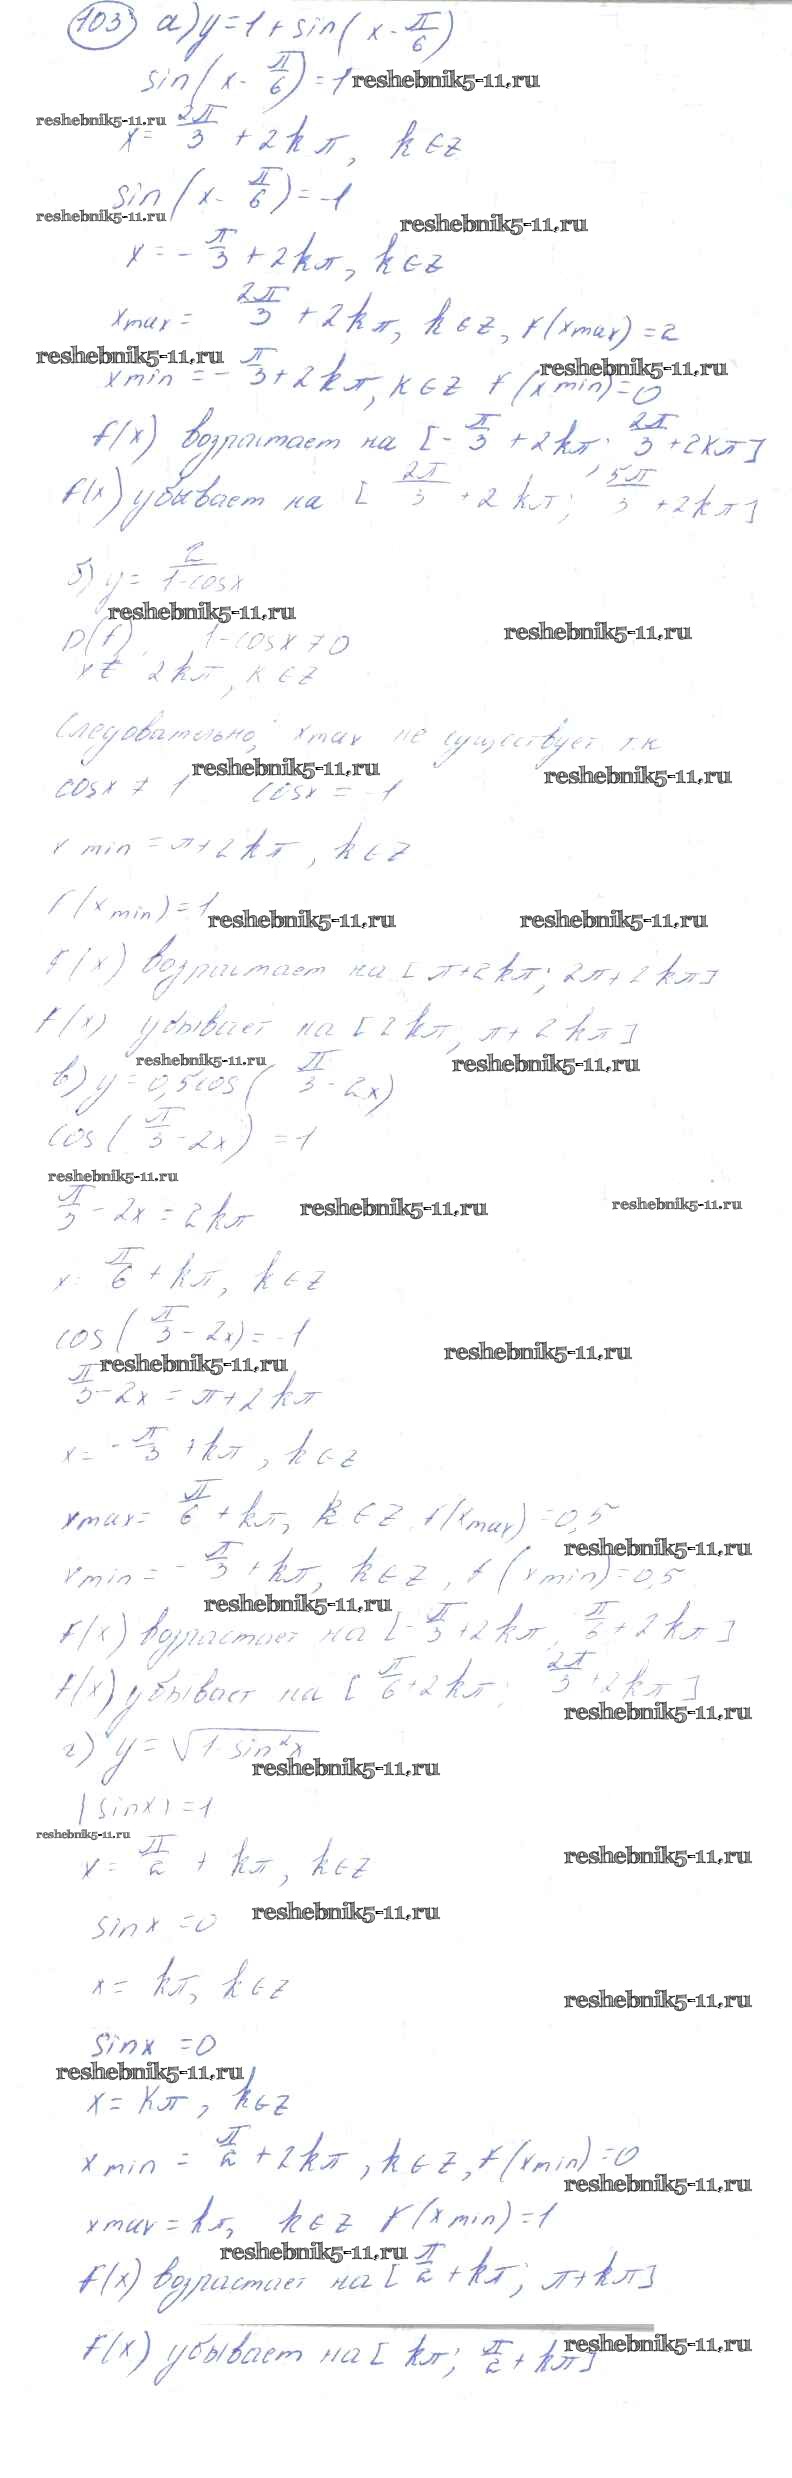 103 а) y = 1 + sin(x - π/6)
sin(x - π/6) = 1 reshebnik5-11.ru
reshebnik5-11.ru
x = 2π/3 + 2kπ, k∈z
sin(x - π/6) = -1
reshebnik5-11.ru
reshebnik5-11.ru
x = -π/3 + 2kπ, k∈z
xmax = 2π/3 + 2kπ, k∈z, f(xmax) = 2
reshebnik5-11.ru reshebnik5-11.ru
xmin = -π/3 + 2kπ, k∈z f(xmin) = 0
f(x) возрастает на [-π/3 + 2kπ; 2π/3 + 2kπ]
f(x) убывает на [2π/3 + 2kπ; 5π/3 + 2kπ]
б) y = 2/(1-cosx)
reshebnik5-11.ru
D(f) 1-cosx ≠ 0 reshebnik5-11.ru
x ≠ 2kπ, k∈z
Следовательно, xmax не существует т.к
reshebnik5-11.ru reshebnik5-11.ru
cosx ≠ 1 cosx = -1
xmin = π + 2kπ, k∈z
f(xmin) = 1 reshebnik5-11.ru reshebnik5-11.ru
f(x) возрастает на [π+2kπ; 2π+2kπ]
f(x) убывает на [2kπ, π+2kπ]
reshebnik5-11.ru reshebnik5-11.ru
в) y = 0,5cos(π/3 - 2x)
cos(π/3 - 2x) = 1
reshebnik5-11.ru
π/3 - 2x = 2kπ reshebnik5-11.ru reshebnik5-11.ru
x = π/6 + kπ, k∈z
cos(π/3 - 2x) = -1
reshebnik5-11.ru reshebnik5-11.ru
π/3 - 2x = π + 2kπ
x = -π/3 + kπ, k∈z
xmax = π/6 + kπ, k∈z f(xmax) = 0,5
reshebnik5-11.ru
xmin = -π/3 + kπ, k∈z, f(xmin) = 0,5
reshebnik5-11.ru
f(x) возрастает на [-π/3 + 2kπ, π/6 + 2kπ]
f(x) убывает на [π/6 + 2kπ; 2π/3 + 2kπ]
reshebnik5-11.ru
г) y = √(1-sin²x)
reshebnik5-11.ru
|sinx| = 1
reshebnik5-11.ru
x = π/2 + kπ, k∈z reshebnik5-11.ru
sinx = 0 reshebnik5-11.ru
x = kπ, k∈z
reshebnik5-11.ru
sinx = 0
reshebnik5-11.ru
x = kπ, k∈z
xmin = π/2 + 2kπ, k∈z, f(xmin) = 0
reshebnik5-11.ru
xmax = kπ, k∈z f(xmin) = 1
reshebnik5-11.ru
f(x) возрастает на [π/2 + kπ; π+kπ]
reshebnik5-11.ru
f(x) убывает на [kπ; π/2 + kπ]